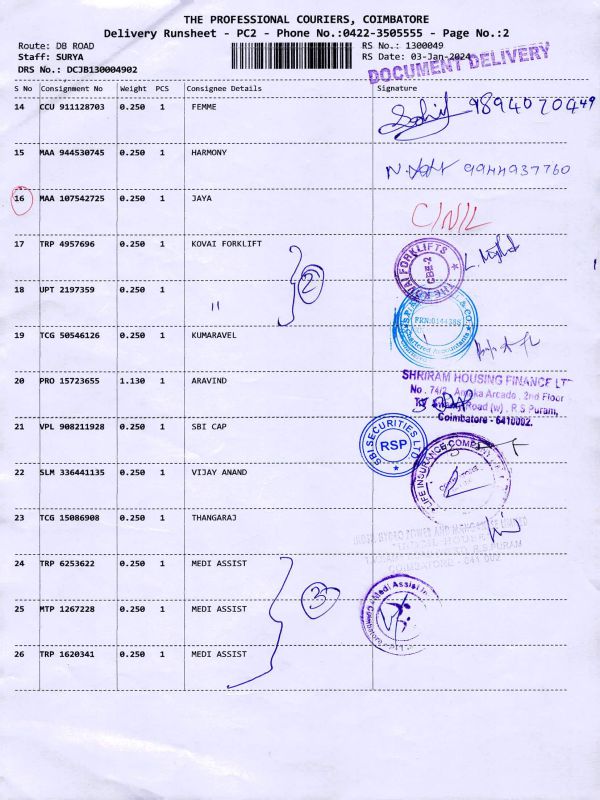 THE PROFESSIONAL COURIERS, COIMBATORE
Delivery Runsheet - PC2 - Phone No.:0422-3505555 - Page No.:2
Route: DB ROAD RS No.: 1300049
Staff: SURYA RS Date: 03-Jan-2024
DRS No.: DCJB130004902
DOCUMENT DELIVERY
S No Consignment No Weight PCS Consignee Details Signature
14 CCU 911128703 0.250 1 FEMME 9894070449
15 MAA 944530745 0.250 1 HARMONY 9944937760
16 MAA 107542725 0.250 1 JAYA C/N/L
17 TRP 4957696 0.250 1 KOVAI FORKLIFT
THE KOVAI FORKLIFTS CBE-2
2
18 UPT 2197359 0.250 1 "
FRN:014438S
Chartered Accountants
19 TCG 50546126 0.250 1 KUMARAVEL
20 PRO 15723655 1.130 1 ARAVIND
SHRIRAM HOUSING FINANCE LT
No. 74/2, Arcade, 2nd Floor
Road (w), R.S Puram,
Coimbatore - 6410002.
21 VPL 908211928 0.250 1 SBI CAP
SBI SECURITIES LTD. RSP
22 SLM 336441135 0.250 1 VIJAY ANAND
LIFE INSURANCE COMPANY
23 TCG 15086908 0.250 1 THANGARAJ
R.S PURAM
COIMBATORE - 641 002
24 TRP 6253622 0.250 1 MEDI ASSIST
3
25 MTP 1267228 0.250 1 MEDI ASSIST
Medi Assist In
Coimbatore
26 TRP 1620341 0.250 1 MEDI ASSIST